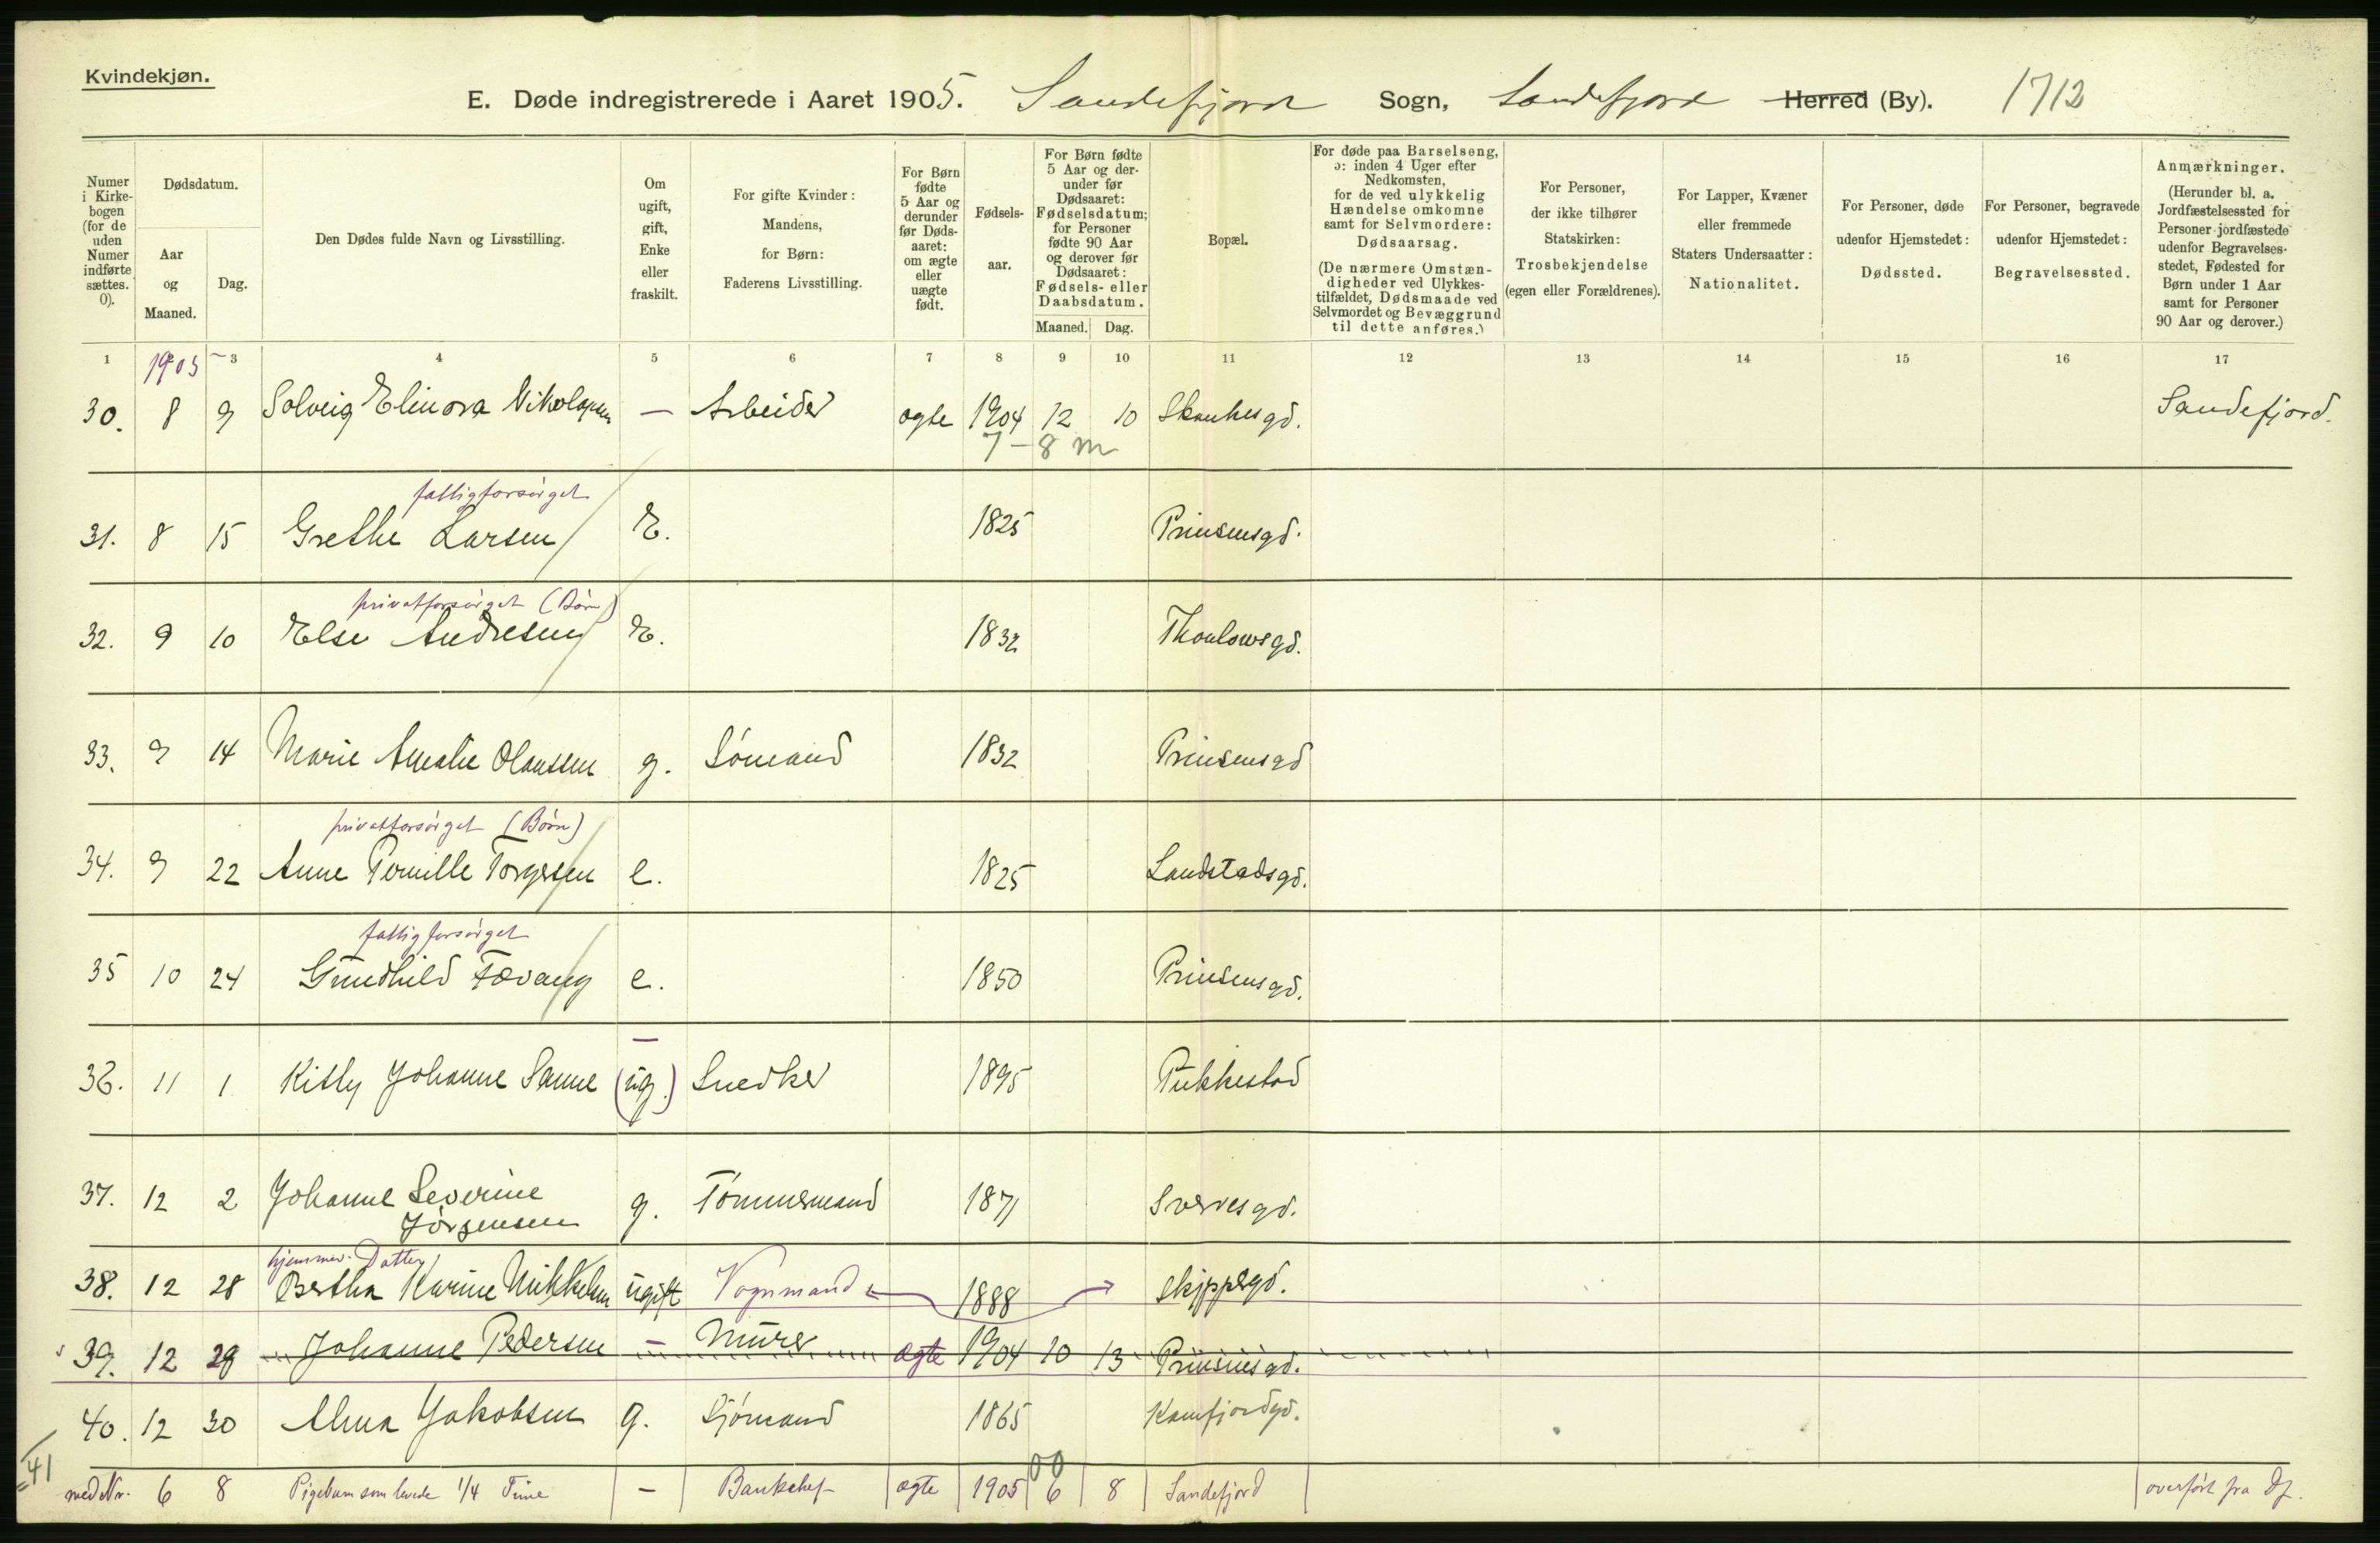 Kvindekjøn.
E. Døde indregistrerede i Aaret 1905. Sandefjord Sogn, Sandefjord Herred (By). 1712
Numer i Kirkebogen (for de uden Numer indførte sættes. 0).
Dødsdatum.
Aar og Maaned.
Dag.
Den Dødes fulde Navn og Livsstilling.
Om ugift, gift, Enke eller fraskilt.
For gifte Kvinder: Mandens, for Børn: Faderens Livsstilling.
For Børn fødte 5 Aar og derunder før Dødsaaret: om ægte eller uægte født.
Fødselsaar.
For Børn fødte 5 Aar og derunder før Dødsaaret: Fødselsdatum; for Personer fødte 90 Aar og derover før Dødsaaret: Fødsels- eller Daabsdatum.
Maaned. Dag.
Bopæl.
For døde paa Barselseng, ɔ: inden 4 Uger efter Nedkomsten, for de ved ulykkelig Hændelse omkomne samt for Selvmordere: Dødsaarsag.
(De nærmere Omstændigheder ved Ulykkestilfældet, Dødsmaade ved Selvmordet og Bevæggrund til dette anføres.)
For Personer, der ikke tilhører Statskirken: Trosbekjendelse (egen eller Forældrenes).
For Lapper, Kvæner eller fremmede Staters Undersaatter: Nationalitet.
For Personer, døde udenfor Hjemstedet: Dødssted.
For Personer, begravede udenfor Hjemstedet: Begravelsessted.
Anmærkninger. (Herunder bl. a. Jordfæstelsessted for Personer jordfæstede udenfor Begravelsesstedet, Fødested for Børn under 1 Aar samt for Personer 90 Aar og derover.)
1 2 3 4 5 6 7 8 9 10 11 12 13 14 15 16 17
1905
30. 8 9 Solveig Elinora Nikolaysen — Arbeider ægte 1904 12 10 Skauhesgd. Sandefjord.
7-8 m
fattigforsørget
31. 8 15 Grethe Larsen E. 1825 Prinsensgd.
privatforsørget (Børn)
32. 9 10 Else Andresen E. 1832 Thoulowsgd.
33. 9 14 Marie Amalie Olaussen g. Sømand 1832 Prinsensgd
privatforsørget (Børn)
34. 9 22 Anne Pernille Torgersen e. 1825 Landstadsgd.
fattigforsørget
35 10 24 Gundhild Fævang e. 1850 Prinsensgd.
36. 11 1 Kitty Johanne Sanne (ug.) Snedker 1895 Pukkestad
37. 12 2 Johanne Severine g. Tømmermand 1871 Sverresgd.
Jørgensen
hjemmev. Datter
38. 12 28 Bertha Karine Mikkelsen ugift Vognmand 1888 Skippergd.
39. 12 29 Johanne Pedersen — Murer ægte 1904 10 13 Prinsensgd.
40. 12 30 Alma Jakobsen g. Sjømand 1865 Kamfjordgd.
41
00
med Nr. 6 8 Pigebarn som levede 1/4 Time — Bankchef ægte 1905 6 8 Sandefjord overført fra Df.